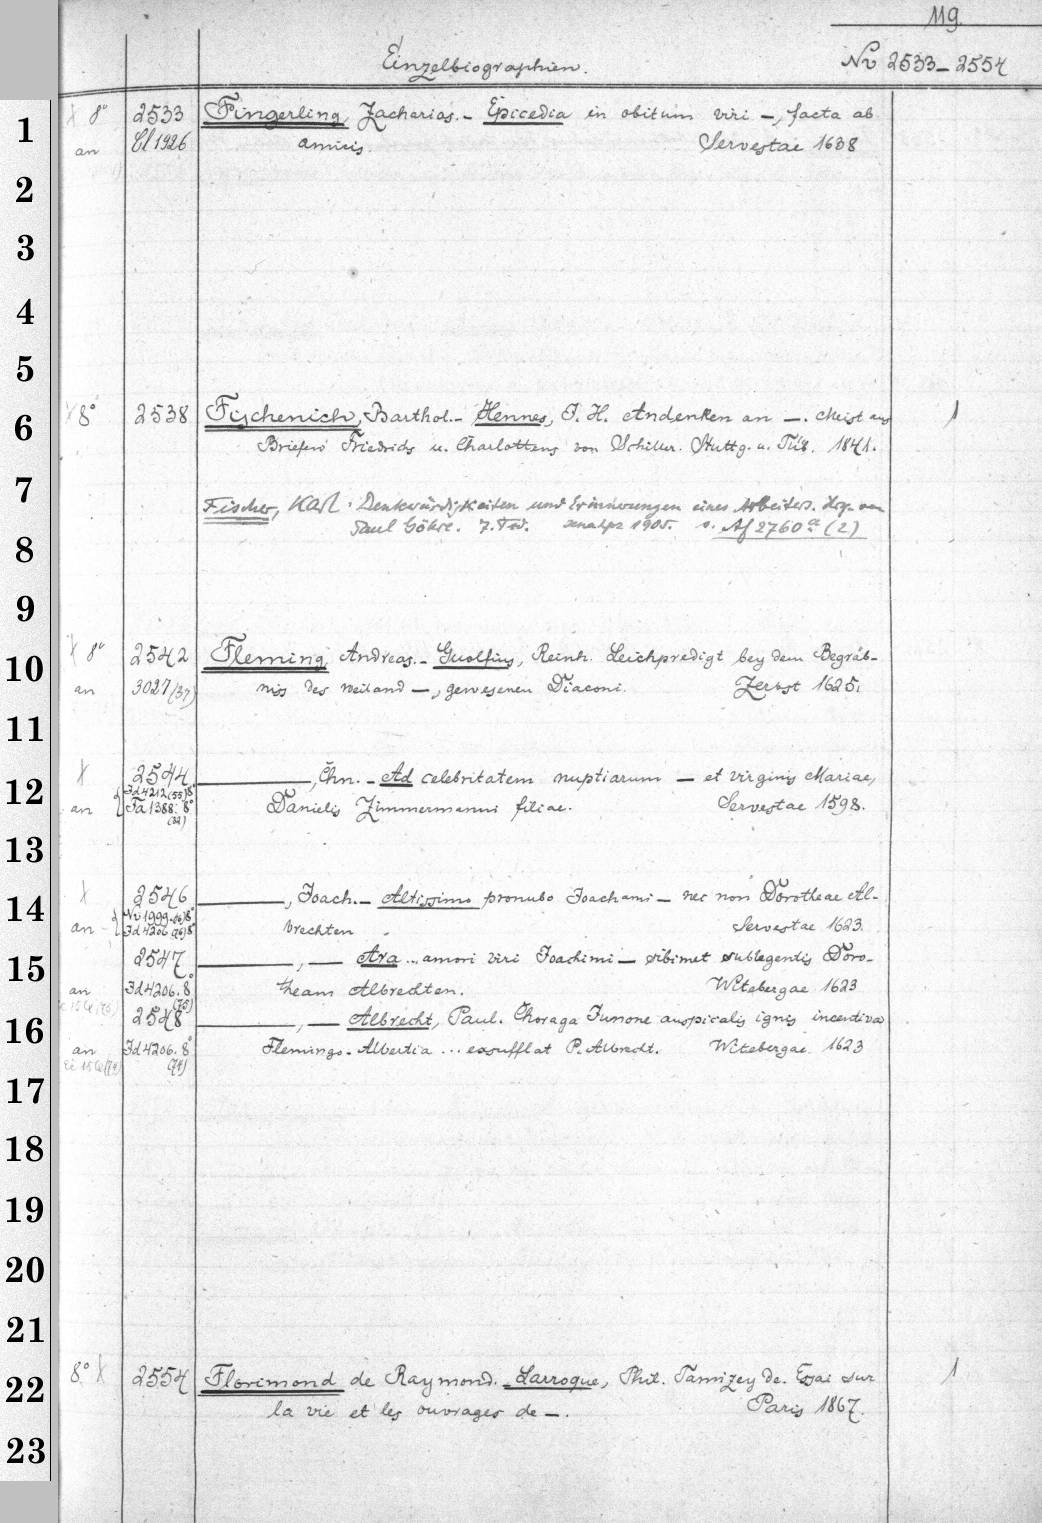 119.
Einzelbiographien. Nv 2533-2554
1 8° 2533 Fingerling, Zacharias.- Epicedia in obitum viri -, facta ab
an Cl 1926 amicis. Servestae 1638
2
3
4
5
6 8° 2538 Fischenich, Barthol.- Hennes, J. H. Andenken an -. Meist aus 1
Briefen Friedrichs u. Charlottens von Schiller. Stuttg. u. Tüb. 1841.
7 Fischer, Karl. Denkwürdigkeiten und Erinnerungen eines Arbeiters. Hrsg. von
8 Paul Göhre. 7. Tsd. 1905. s. Af 2760 α (2)
9
10 8° 2542 Fleming, Andreas.- Guolfius, Reinh. Leichpredigt bey dem Begräb-
an 3027 (37) niss des weiland -, gewesenen Diaconi. Zerbst 1625.
11
12 2544 —, Chn. - Ad celebritatem nuptiarum - et virginis Mariae,
an Jd 4212 (55) 8° Ta 1388: 8° (32) Danielis Zimmermanni filiae. Servestae 1598.
13
14 2546 —, Joach.- Altissimo pronubo Joachami - nec non Dorotheae Al-
an Jd 4206 8° brechten Servestae 1623.
15 2547 —, — Ara ... amori viri Joachimi - sibimet sublegentis Doro-
an Jd 4206. 8° (73) theam Albrechten. Witebergae 1623
16 2548 —, — Albrecht, Paul. Choraga Junone auspicalis ignis incentiva
an Jd 4206. 8° (74) Flemingo-Albertia ... exsufflat P. Albrecht. Witebergae 1623
17
18
19
20
21
22 8° 2554 Florimond de Raymond. - Larroque, Phil. Tamizey de. Essai sur 1
la vie et les ouvrages de -. Paris 1867.
23